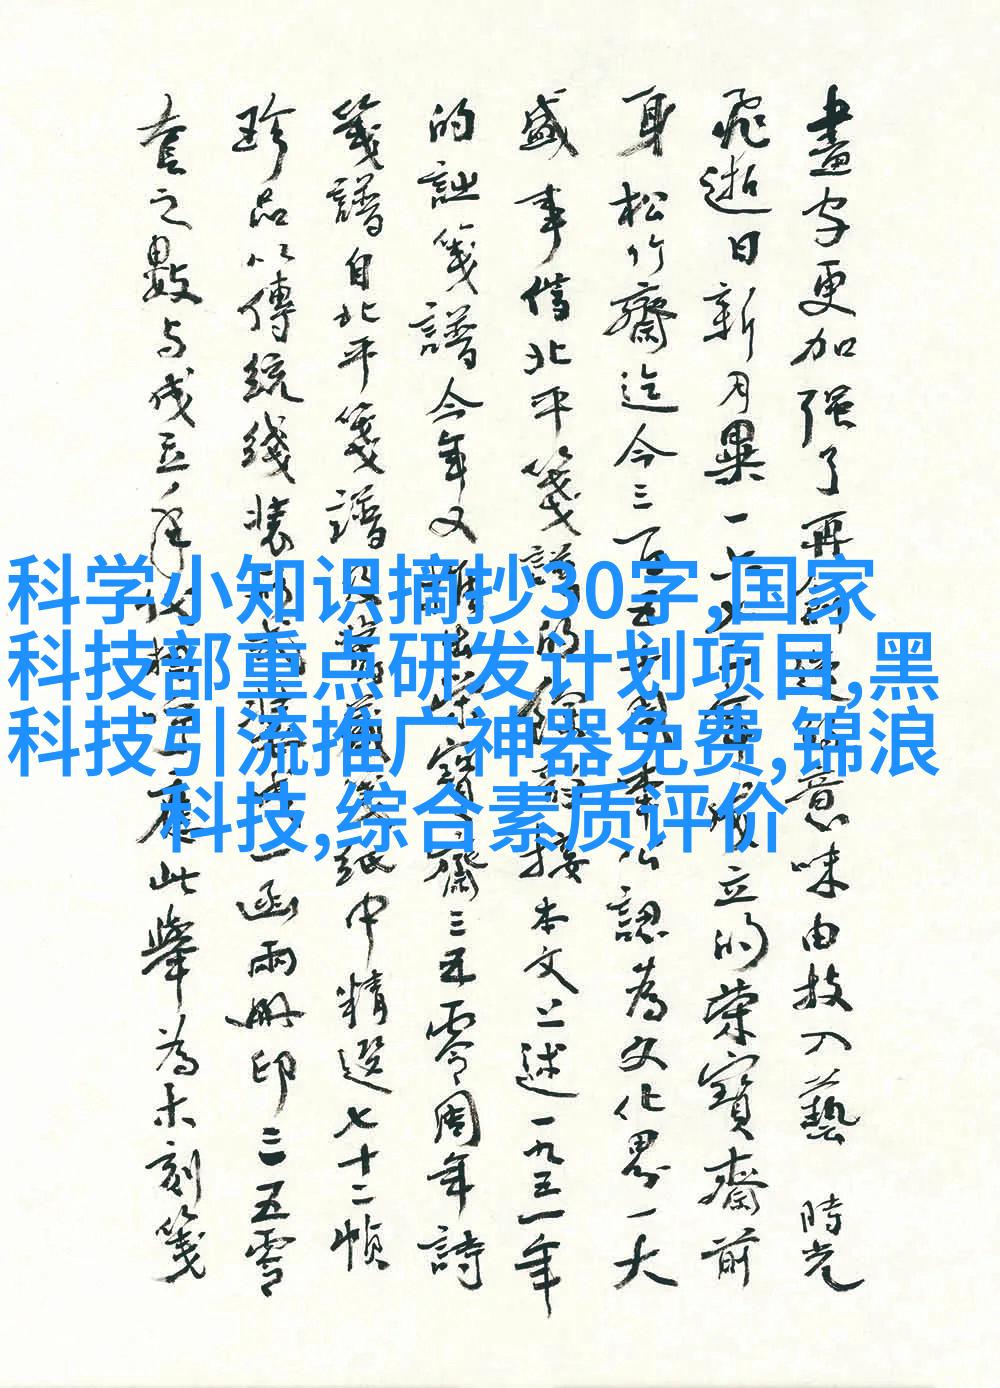 畫字更加强了再創造的意味由技入藝 時光
飛逝日新月異一
立的榮寶齋前
身松竹齋迄今三百五
公認為文化界一大
盛事借北平箋譜的
接本文上述一九五一年
的詩箋譜今年又
寶齋三五零周年詩
箋譜自北平箋譜
箋紙中精選七十二幀
珍品以傳統线裝
一函兩冊印三五零
套之數与成立年
應此舉為木刻箋
科学小知识摘抄30字,国家
科技部重点研发计划项目,黑
科技引流推广神器免费,锦浪
科技,综合素质评价